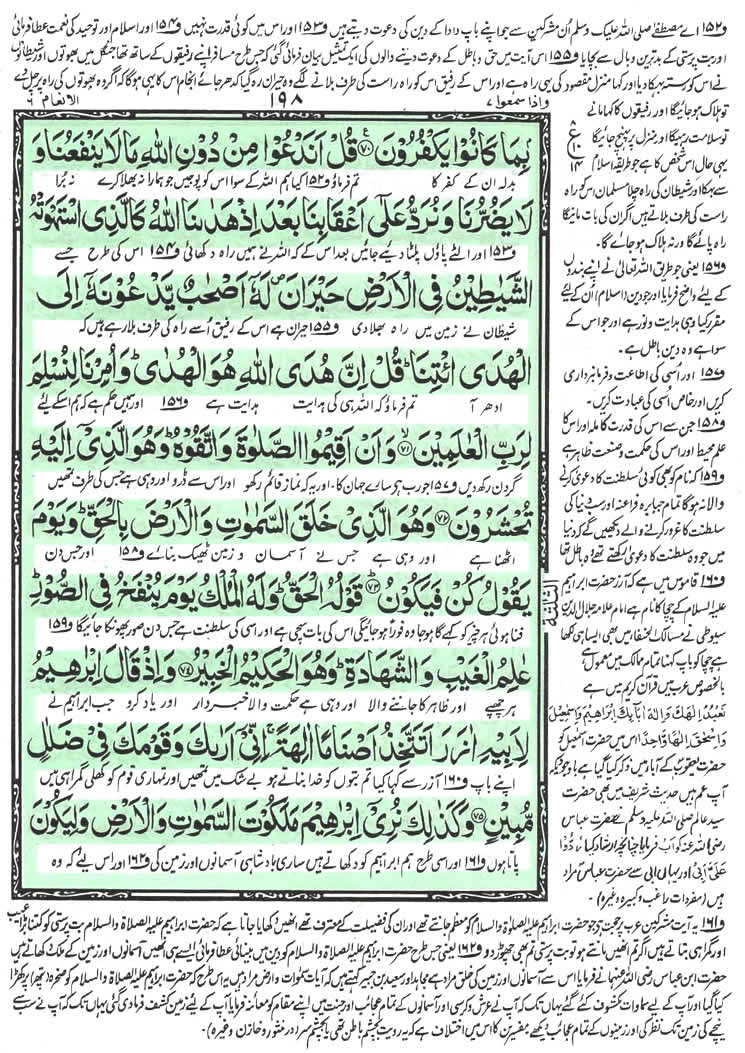 و۱۵۲ اے مصطفےٰ صلی اللہ علیک وسلم اُن مشرکین سے جو اپنے باپ دادا کے دین کی دعوت دیتے ہیں و۱۵۳ اور اس میں کوئی قدرت نہیں و۱۵۴ اور اسلام اور توحید کی نعمت عطا فرمائی
اور بت پرستی کے بدترین وبال سے بچایا و۱۵۵ اس آیت میں حق و باطل کے دعوت دینے والوں کی ایک تمثیل بیان فرمائی گئی کہ جس طرح مسافر اپنے رفیقوں کے ساتھ تھا جنگل میں بھوتوں اور شیطانوں
نے اس کو رستہ بہکا دیا اور کہا منزل مقصود کی یہی راہ ہے اور اس کے رفیق اس کو راہ راست کی طرف بلانے لگے وہ حیران رہ گیا کدھر جائے انجام اس کا یہی ہوگا کہ اگر وہ بھوتوں کی راہ پر چل دے
واذا سمعوا ۷
۱۹۸
الانعام ۶
بِمَا كَانُوْا يَكْفُرُوْنَ ﴿۷۰﴾ قُلْ اَنَدْعُوْا مِنْ دُوْنِ اللّٰهِ مَا لَا يَنْفَعُنَا وَ
بدلہ ان کے کفر کا تم فرماؤ و۱۵۲ کیا ہم اللہ کے سوا اس کو پوجیں جو ہمارا نہ بھلا کرے نہ بُرا
لَا يَضُرُّنَا وَ نُرَدُّ عَلٰٓى اَعْقَابِنَا بَعْدَ اِذْ هَدٰىنَا اللّٰهُ كَالَّذِى اسْتَهْوَتْهُ
و۱۵۳ اور الٹے پاؤں پلٹا دیئے جائیں بعد اس کے کہ اللہ نے ہمیں راہ دکھائی و۱۵۴ اس کی طرح جسے
الشَّيٰطِيْنُ فِى الْاَرْضِ حَيْرَانَ ۪ لَهٗٓ اَصْحٰبٌ يَّدْعُوْنَهٗٓ اِلَى
شیطان نے زمین میں راہ بھلا دی و۱۵۵ حیران ہے اس کے رفیق اُسے راہ کی طرف بلا رہے ہیں کہ
الْهُدَى ائْتِنَا ؕ قُلْ اِنَّ هُدَى اللّٰهِ هُوَ الْهُدٰى ؕ وَ اُمِرْنَا لِنُسْلِمَ
ادھر آ تم فرماؤ کہ اللہ ہی کی ہدایت ہدایت ہے و۱۵۶ اور ہمیں حکم ہے کہ ہم اس کے لیے
لِرَبِّ الْعٰلَمِيْنَ ﴿۷۱﴾ وَ اَنْ اَقِيْمُوا الصَّلٰوةَ وَ اتَّقُوْهُ ؕ وَ هُوَ الَّذِىْٓ اِلَيْهِ
گردن رکھ دیں و۱۵۷ جو رب ہے سارے جہان کا اور یہ کہ نماز قائم رکھو اور اس سے ڈرو اور وہی ہے جس کی طرف تمہیں
تُحْشَرُوْنَ ﴿۷۲﴾ وَ هُوَ الَّذِىْ خَلَقَ السَّمٰوٰتِ وَ الْاَرْضَ بِالْحَقِّ ؕ وَ يَوْمَ
اٹھنا ہے اور وہی ہے جس نے آسمان و زمین ٹھیک بنائے و۱۵۸ اور جس دن
يَقُوْلُ كُنْ فَيَكُوْنُ ؕ ﴿۷۳﴾ قَوْلُهُ الْحَقُّ ؕ وَ لَهُ الْمُلْكُ يَوْمَ يُنْفَخُ فِى الصُّوْرِ ؕ
فنا ہوئی ہر چیز کو کہے گا ہو جا وہ فوراً ہو جائیگی اس کی بات سچی ہے اور اسی کی سلطنت ہے جس دن صور پھونکا جائیگا و۱۵۹
عٰلِمُ الْغَيْبِ وَ الشَّهَادَةِ ؕ وَ هُوَ الْحَكِيْمُ الْخَبِيْرُ ﴿۷۴﴾ وَ اِذْ قَالَ اِبْرٰهِيْمُ
ہر چھپے اور ظاہر کا جاننے والا اور وہی ہے حکمت والا خبردار اور یاد کرو جب ابراہیم نے
لِاَبِيْهِ اٰزَرَ اَتَتَّخِذُ اَصْنَامًا اٰلِهَةً ۚ اِنِّىْٓ اَرٰىكَ وَ قَوْمَكَ فِىْ ضَلٰلٍ
اپنے باپ و۱۶۰ آزر سے کہا کیا تم بتوں کو خدا بناتے ہو بے شک میں تمہیں اور تمہاری قوم کو کھلی گمراہی میں
مُّبِيْنٍ ﴿۷۵﴾ وَ كَذٰلِكَ نُرِىْٓ اِبْرٰهِيْمَ مَلَكُوْتَ السَّمٰوٰتِ وَ الْاَرْضِ وَ لِيَكُوْنَ
پاتا ہوں و۱۶۱ اور اسی طرح ہم ابراہیم کو دکھاتے ہیں ساری بادشاہی آسمانوں اور زمین کی و۱۶۲ اور اس لیے کہ وہ
الثلثة
تو ہلاک ہو جائیگا اور رفیقوں کا کہا مانے
تو سلامت رہیگا اور منزل پر پہنچ جائیگا
یہی حال اس شخص کا ہے جو طریقۂ اسلام
سے بہکا اور شیطان کی راہ چلا مسلمان اس کو راہ
راست کی طرف بلاتے ہیں اگر ان کی بات مانیگا
راہ پائے گا ورنہ ہلاک ہو جائے گا۔
و۱۵۶ یعنی جو طریق اللہ تعالیٰ نے اپنے بندوں
کے لیے واضح فرمایا اور جو دین (اسلام) اُن کے لیے
مقرر کیا وہی ہدایت و نور ہے اور جو اس کے
سوا ہے وہ دین باطل ہے۔
و۱۵۷ اور اُسی کی اطاعت و فرمانبرداری
کریں اور خاص اُسی کی عبادت کریں۔
و۱۵۸ جن سے اس کی قدرت کاملہ اور اس کا
علم محیط اور اس کی حکمت و صنعت ظاہر ہے
و۱۵۹ کہ نام کو بھی کوئی سلطنت کا دعویٰ کرنے
والا نہ ہوگا تمام جبابرہ فراعنہ اور سب دنیا کی
سلطنت کا غرور کرنے والے دیکھیں گے کہ دنیا
میں جو وہ سلطنت کا دعویٰ رکھتے تھے وہ باطل تھا
و۱۶۰ قاموس میں ہے کہ آزر حضرت ابراہیم
علیہ السلام کے چچا کا نام ہے امام علامہ جلال الدین
سیوطی نے مسالک الحنفا میں بھی ایسا ہی لکھا
ہے چچا کو باپ کہنا تمام ممالک میں معمول ہے
بالخصوص عرب میں قرآن کریم میں ہے
نَعْبُدُ اِلٰهَكَ وَاِلٰهَ اٰبَآئِكَ اِبْرٰهِيْمَ وَاِسْمٰعِيْلَ
وَاِسْحٰقَ اِلٰهًا وَّاحِدًا اس میں حضرت اسمٰعیل کو
حضرت یعقوب کے آبا میں ذکر کیا گیا ہے باوجودیکہ
آپ عم ہیں حدیث شریف میں بھی حضرت
سید عالم صلی اللہ علیہ وسلم نے حضرت عباس
رضی اللہ عنہ کو اب فرمایا چنانچہ ارشاد کیا رُدُّوْا
عَلَىَّ اَبِىْ اور یہاں ابی سے حضرت عباس مراد
ہیں (مفردات راغب و کبیر وغیرہ)
و۱۶۱ یہ آیت مشرکین عرب پر حجت ہے جو حضرت ابراہیم علیہ الصلاۃ والسلام کو معظم جانتے تھے اور ان کی فضیلت کے معترف تھے انھیں دکھایا جاتا ہے کہ حضرت ابراہیم علیہ الصلاۃ والسلام بت پرستی کو کتنا بڑا عیب
اور گمراہی بتاتے ہیں اگر تم انھیں مانتے ہو تو بت پرستی تم بھی چھوڑ دو و۱۶۲ یعنی جس طرح حضرت ابراہیم علیہ الصلاۃ والسلام کو دین میں بینائی عطا فرمائی ایسے ہی انھیں آسمانوں اور زمین کے ملک دکھاتے ہیں
حضرت ابن عباس رضی اللہ عنہما نے فرمایا اس سے آسمانوں اور زمین کی خلق مراد ہے مجاہد اور سعید بن جبیر کہتے ہیں کہ آیات سمٰوات و ارض مراد ہیں یہ اس طرح کہ حضرت ابراہیم علیہ الصلاۃ والسلام کو صخرہ (پتھر) پر کھڑا
کیا گیا اور آپ کے لیے سماوات مکشوف کئے گئے یہاں تک کہ آپ نے عرش و کرسی اور آسمانوں کے تمام عجائب اور جنت میں اپنے مقام کو معائنہ فرمایا آپ کے لیے زمین کشف فرما دی گئی یہاں تک کہ آپ نے سب سے
نیچے کی زمین تک نظر کی اور زمینوں کے تمام عجائب دیکھے مفسرین کا اس میں اختلاف ہے کہ یہ رویت بچشم باطن تھی یا بچشم سر (در منثور و خازن وغیرہ)۔